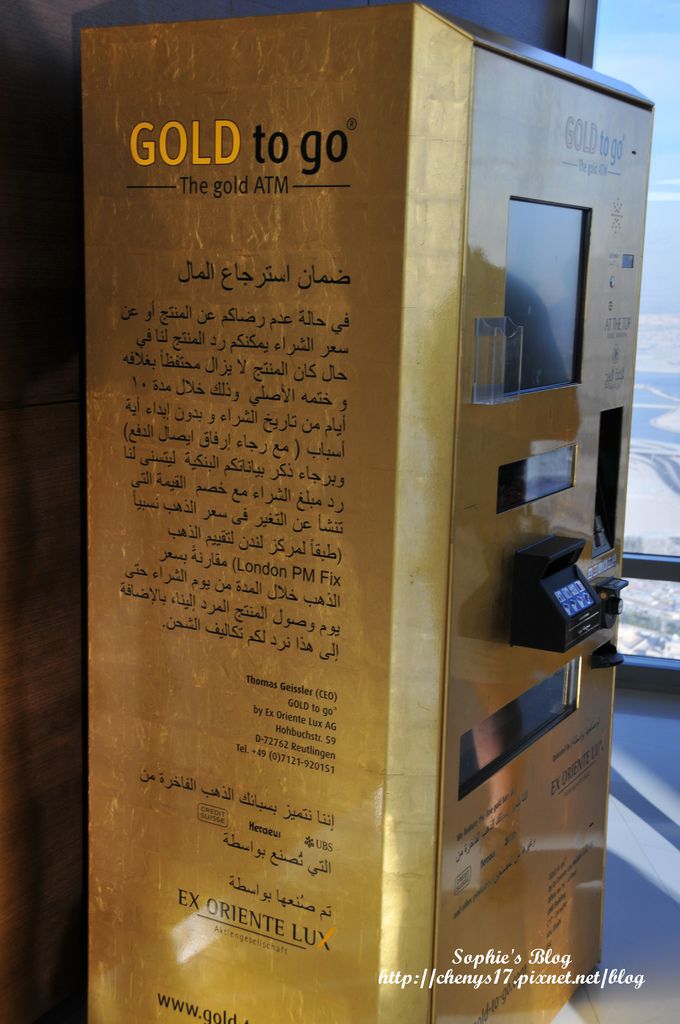 GOLD to go®
The gold ATM
ضمان استرجاع المال
في حالة عدم رضاكم عن المنتج أو عن
سعر الشراء يمكنكم رد المنتج لنا في
حال كان المنتج لا يزال محتفظاً بغلافه
و ختمه الأصلي وذلك خلال مدة ١٠
أيام من تاريخ الشراء و بدون إبداء أية
أسباب ( مع رجاء إرفاق ايصال الدفع)
وبرجاء ذكر بياناتكم البنكية ليتسنى لنا
رد مبلغ الشراء مع خصم القيمة التى
تنشأ عن التغير فى سعر الذهب نسبياً
(طبقاً لمركز لندن لتقييم الذهب
London PM Fix) مقارنةً بسعر
الذهب خلال المدة من يوم الشراء حتى
يوم وصول المنتج المرد إلينا، بالإضافة
إلى هذا نرد لكم تكاليف الشحن.
Thomas Geissler (CEO)
GOLD to go®
by Ex Oriente Lux AG
Hohbuchstr. 59
D-72762 Reutlingen
Tel. +49 (0)7121-920151
إننا نتميز بسبائك الذهب الفاخرة من
CREDIT SUISSE Heraeus UBS
التي تُصنع بواسطة
تم صُنعها بواسطة
EX ORIENTE LUX
Aktiengesellschaft
www.gold-
GOLD to go®
The gold ATM
AT THE TOP
EX ORIENTE LUX
Sophie's Blog
http://chenys17.pixnet.net/blog